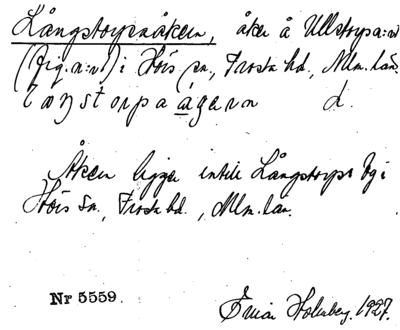 Långstorpsåkern, åker å Ullstorpa:vt
(fig.n:r1) i Höörs sn, Frosta hd., Mlm. län.
långstorpaågern d.
Åkern ligger intill Långstorps by i
Höörs Sn, Frosta hd., Mlm. län.
Nr 5559.
Erica Holmberg. 1927.